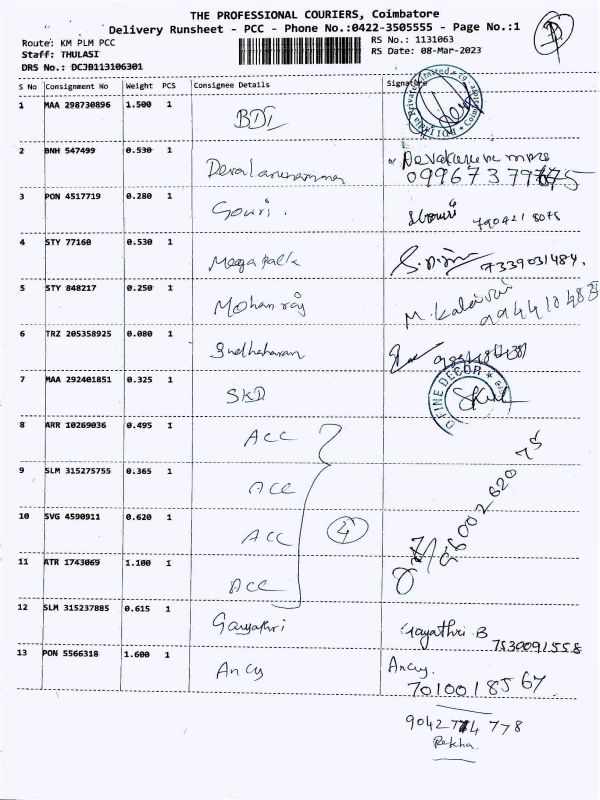 THE PROFESSIONAL COURIERS, Coimbatore
Delivery Runsheet - PCC - Phone No.:0422-3505555 - Page No.:1
Route: KM PLM PCC
RS No.: 1131063
Staff: THULASI
RS Date: 08-Mar-2023
DRS No.: DCJB113106301
S No Consignment No Weight PCS Consignee Details Signature
1 MAA 298730896 1.500 1 BDI
2 BNH 547499 0.530 1
3 PON 4517719 0.280 1 Gowri. Gowri
4 STY 77160 0.530 1 7339031484.
5 STY 848217 0.250 1 Mohan raj M. Kalaivani
6 TRZ 205358925 0.080 1
7 MAA 292401851 0.325 1 SKD D FINE DECOR
8 ARR 10269036 0.495 1 ACC
9 SLM 315275755 0.365 1 ACC
10 SVG 4590911 0.620 1 ACC 4
11 ATR 1743069 1.100 1 ACC
12 SLM 315237885 0.615 1 Gayathri Gayathri B
7530091558
13 PON 5566318 1.600 1 Ancy Ancy.
7010018567
778
Rekha.